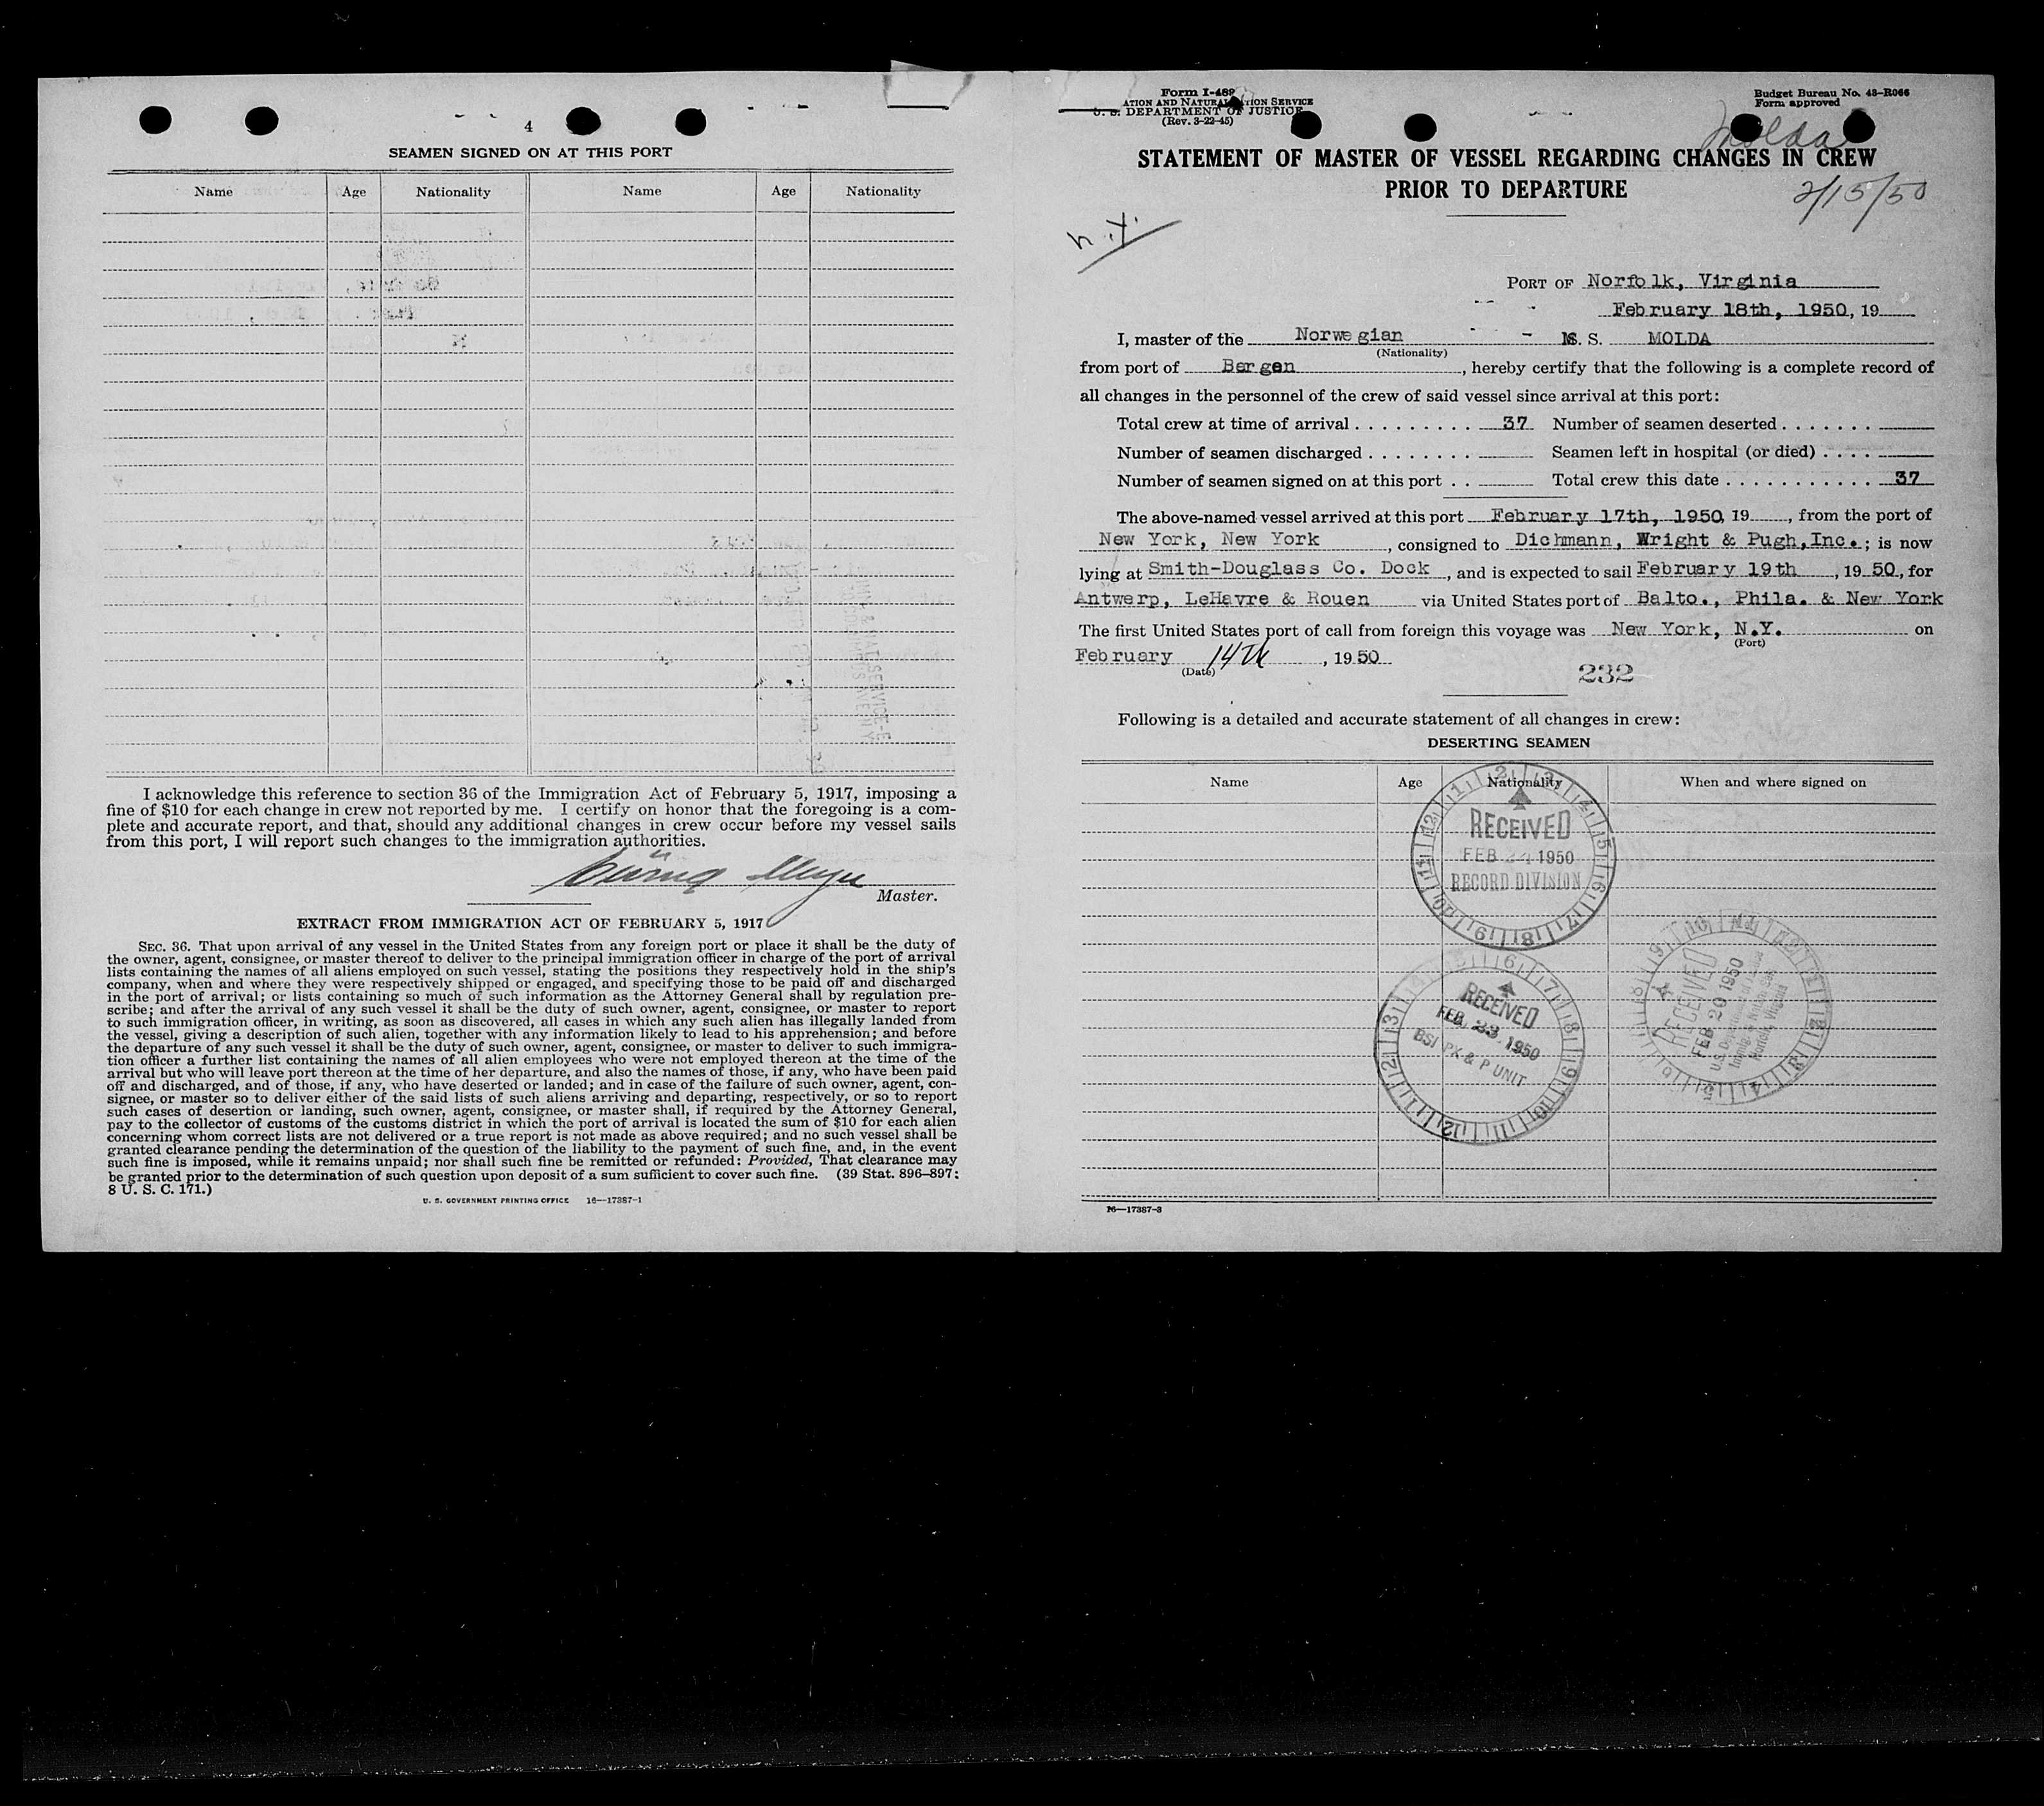 4
SEAMEN SIGNED ON AT THIS PORT
Name Age Nationality Name Age Nationality
I acknowledge this reference to section 36 of the Immigration Act of February 5, 1917, imposing a
fine of $10 for each change in crew not reported by me. I certify on honor that the foregoing is a com-
plete and accurate report, and that, should any additional changes in crew occur before my vessel sails
from this port, I will report such changes to the immigration authorities.
Master.
EXTRACT FROM IMMIGRATION ACT OF FEBRUARY 5, 1917
SEC. 36. That upon arrival of any vessel in the United States from any foreign port or place it shall be the duty of
the owner, agent, consignee, or master thereof to deliver to the principal immigration officer in charge of the port of arrival
lists containing the names of all aliens employed on such vessel, stating the positions they respectively hold in the ship's
company, when and where they were respectively shipped or engaged, and specifying those to be paid off and discharged
in the port of arrival; or lists containing so much of such information as the Attorney General shall by regulation pre-
scribe; and after the arrival of any such vessel it shall be the duty of such owner, agent, consignee, or master to report
to such immigration officer, in writing, as soon as discovered, all cases in which any such alien has illegally landed from
the vessel, giving a description of such alien, together with any information likely to lead to his apprehension; and before
the departure of any such vessel it shall be the duty of such owner, agent, consignee, or master to deliver to such immigra-
tion officer a further list containing the names of all alien employees who were not employed thereon at the time of the
arrival but who will leave port thereon at the time of her departure, and also the names of those, if any, who have been paid
off and discharged, and of those, if any, who have deserted or landed; and in case of the failure of such owner, agent, con-
signee, or master so to deliver either of the said lists of such aliens arriving and departing, respectively, or so to report
such cases of desertion or landing, such owner, agent, consignee, or master shall, if required by the Attorney General,
pay to the collector of customs of the customs district in which the port of arrival is located the sum of $10 for each alien
concerning whom correct lists are not delivered or a true report is not made as above required; and no such vessel shall be
granted clearance pending the determination of the question of the liability to the payment of such fine, and, in the event
such fine is imposed, while it remains unpaid; nor shall such fine be remitted or refunded: Provided, That clearance may
be granted prior to the determination of such question upon deposit of a sum sufficient to cover such fine. (39 Stat. 896–897;
8 U. S. C. 171.)
U. S. GOVERNMENT PRINTING OFFICE 16—17387-1
Form I-489
ATION AND NATURALIZATION SERVICE
U. S. DEPARTMENT OF JUSTICE
(Rev. 3-22-45)
Budget Bureau No. 43-R066
Form approved
Molda
STATEMENT OF MASTER OF VESSEL REGARDING CHANGES IN CREW
PRIOR TO DEPARTURE
2/15/50
N.Y.
PORT OF Norfolk, Virginia
February 18th, 1950, 19
I, master of the Norwegian M. S. MOLDA
(Nationality)
from port of Bergen, hereby certify that the following is a complete record of
all changes in the personnel of the crew of said vessel since arrival at this port:
Total crew at time of arrival . . . . . . . . . 37 Number of seamen deserted . . . . . . .
Number of seamen discharged . . . . . . . . Seamen left in hospital (or died) . . . .
Number of seamen signed on at this port . . Total crew this date . . . . . . . . . . . 37
The above-named vessel arrived at this port February 17th, 1950, 19, from the port of
New York, New York, consigned to Dichmann, Wright & Pugh,Inc.; is now
lying at Smith-Douglass Co. Dock, and is expected to sail February 19th, 1950, for
Antwerp, LeHavre & Rouen via United States port of Balto., Phila. & New York
The first United States port of call from foreign this voyage was New York, N.Y. on
(Port)
February 14th, 1950
(Date)
232
Following is a detailed and accurate statement of all changes in crew:
DESERTING SEAMEN
Name Age Nationality When and where signed on
RECEIVED
FEB 24 1950
RECORD DIVISION
RECEIVED
FEB. 23. 1950
BSI PX & P UNIT
RECEIVED
FEB 20 1950
U.S. Department of Justice
Immig. & Natz'n Serv.
Norfolk, Virginia
16—17387-3